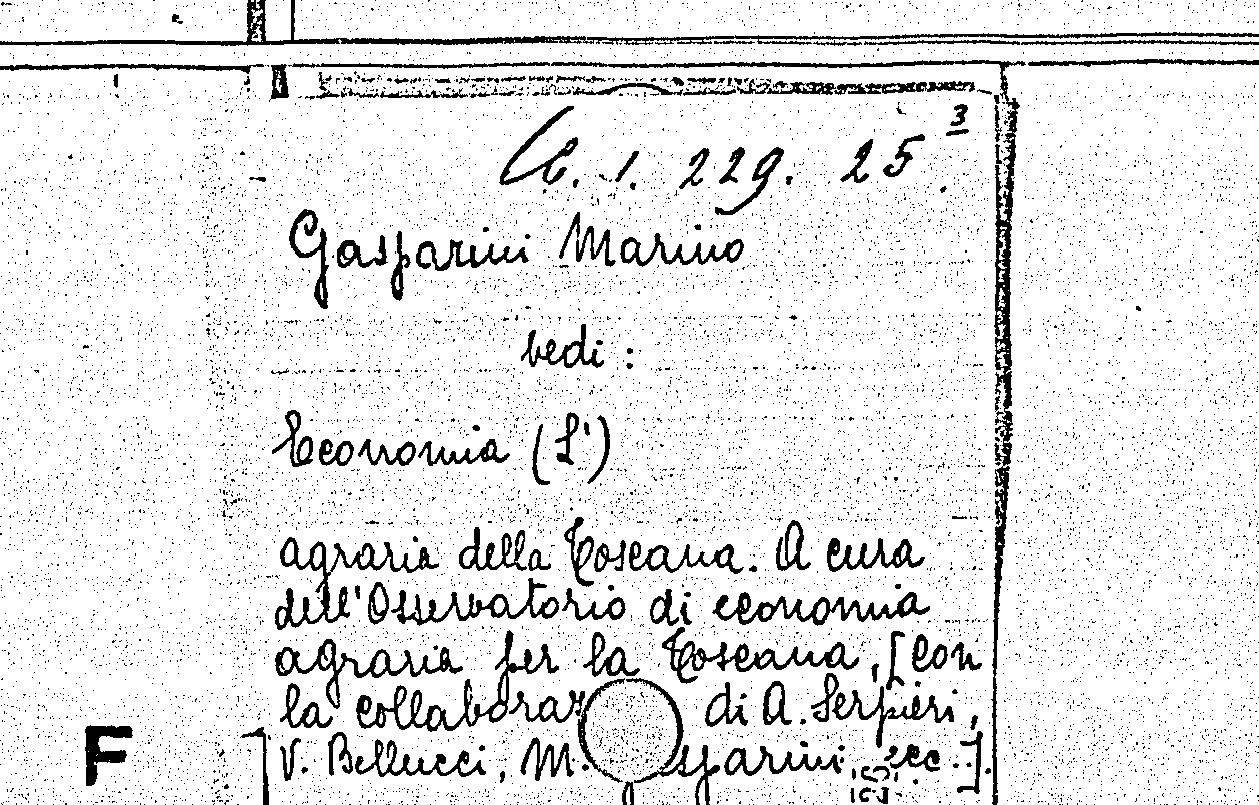 C. 1. 229. 25 3
Gasparini Marino
vedi :
Economia (L')
agraria della Toscana. A cura
dell'Osservatorio di economia
agraria per la Toscana, [con
la collaboraz di A. Serpieri,
V. Bellucci, M. sparini, ecc..].
F